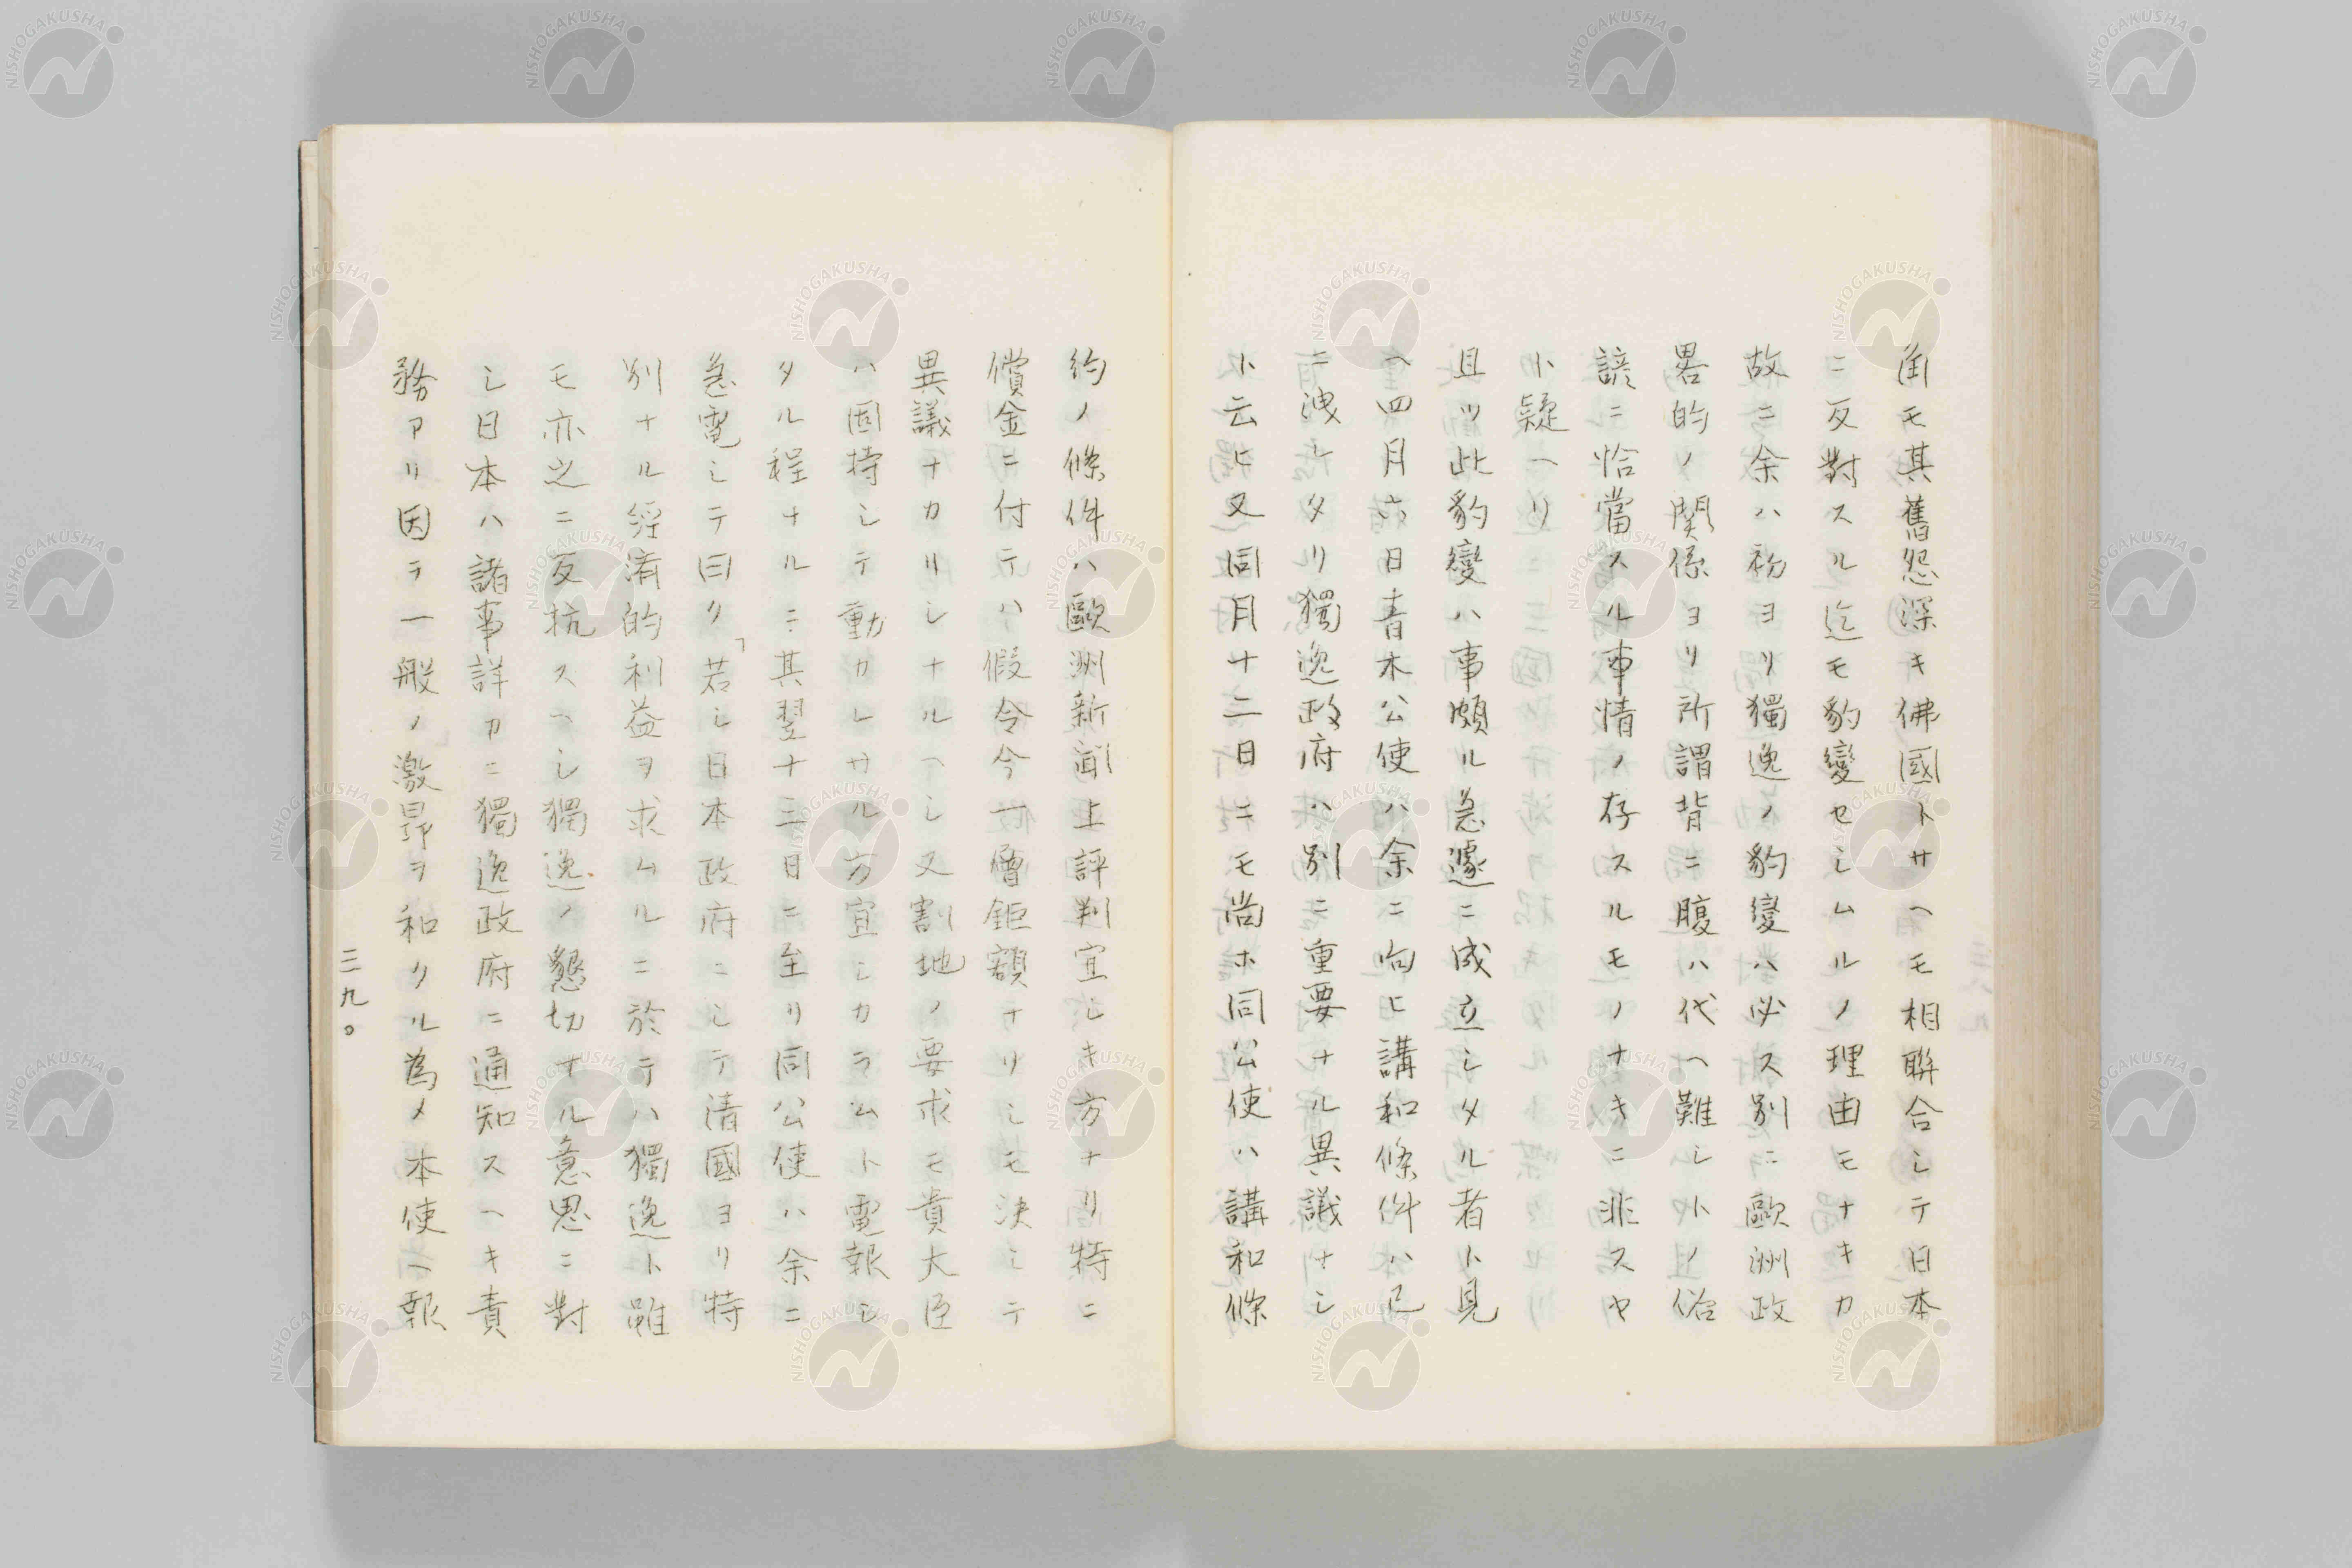 角モ其舊怨深キ佛國トサヘモ相聯合シテ日本
ニ反對スル迄モ豹變セシムルノ理由モナキカ
故ニ余ハ初ヨリ獨逸ノ豹變ハ必ス別ニ歐洲政
畧的ノ関係ヨリ所謂背ニ腹ハ代ヘ難シトノ俗
諺ニ恰當スル事情ノ存スルモノナキニ非スヤ
ト疑ヘリ
且ツ此豹變ハ事頗ル急遽ニ成立シタル者ト見
ヘ四月六日青木公使ハ余ニ向ヒ講和條件ハ已
ニ洩レタリ獨逸政府ハ別ニ重要ナル異議ナシ
ト云ヒ又同月十二日ニモ尚ホ同公使ハ講和條
約ノ條件ハ歐洲新聞上評判宜シキ方ナリ特ニ
償金ニ付テハ假令今一層鉅額ナリシモ決シテ
異議ナカリシナルヘシ又割地ノ要求モ貴大臣
ハ固持シテ動カレサル方宜シカラムト電報シ
タル程ナルニ其翌十三日ニ至リ同公使ハ余ニ
急電シテ曰ク「若シ日本政府ニシテ清國ヨリ特
別ナル經済的利益ヲ求ムルニ於テハ獨逸ト雖
モ亦之ニ反抗スヘシ獨逸ノ懇切ナル意思ニ對
シ日本ハ諸事詳カニ獨逸政府ニ通知スヘキ責
務アリ因テ一般ノ激昂ヲ和クル為メ本使ヘ報
三九〇
NISHOGAKUSHA